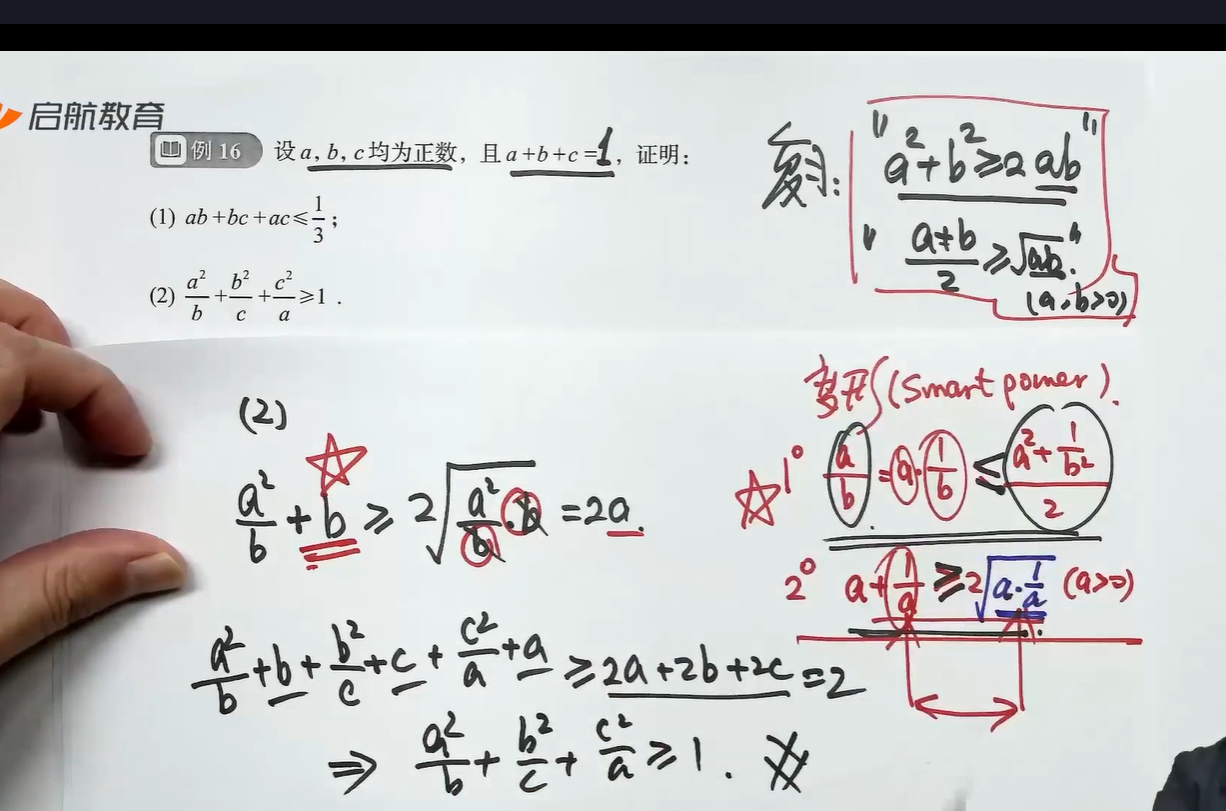 启航教育
例 16 设 a, b, c 均为正数, 且 a+b+c=1, 证明:
(1) ab+bc+ac≤1/3;
(2) a²/b+b²/c+c²/a≥1.
复习:
"a²+b²≥2ab"
"(a+b)/2≥√ab."
(a,b>0)
(2)
a²/b+b≥2√(a²/b·b)=2a.
a²/b+b+b²/c+c+c²/a+a≥2a+2b+2c=2
⇒ a²/b+b²/c+c²/a≥1.
(Smart power).
1° a/b=a·1/b≤(a²+1/b²)/2
2° a+1/a≥2√(a·1/a) (a>0)